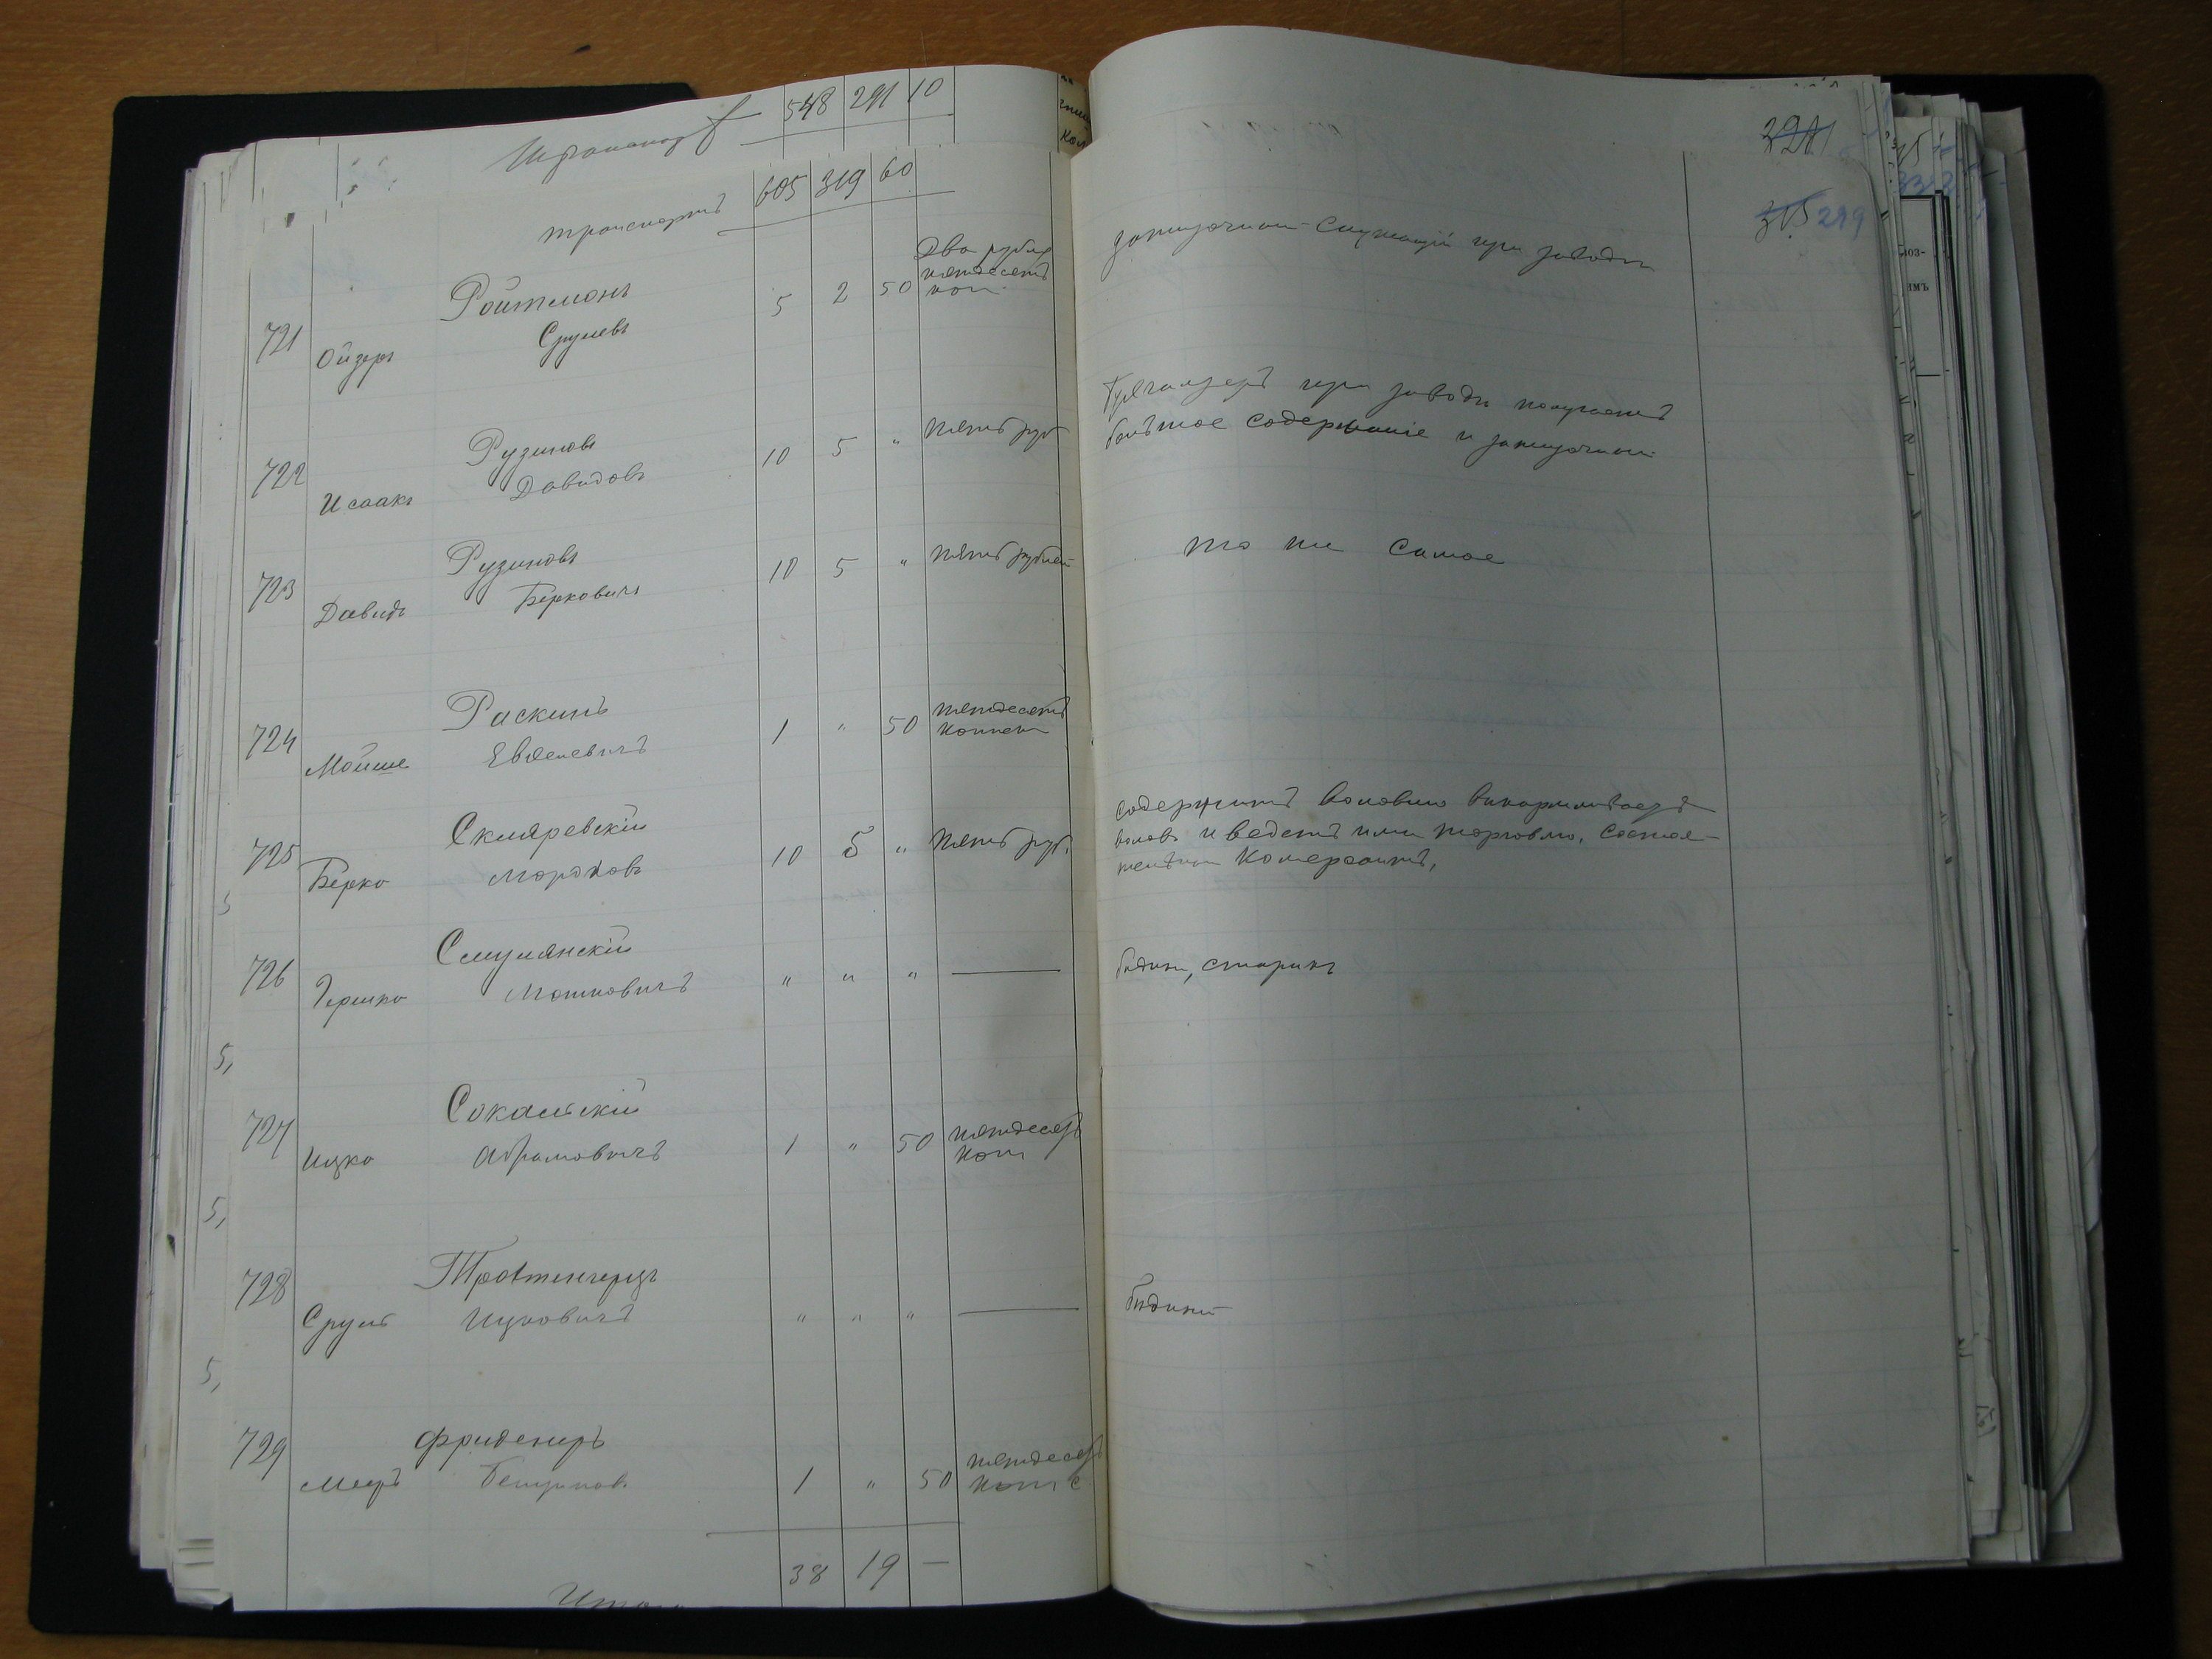 548 291 10
транспортъ 605 319 60
299
721 Ройтманъ 5 2 50 Два рубля пятьдесятъ коп.
Ойзеръ Срулевъ
зажиточный служащій при заводѣ
722 Рузиновъ 10 5 " пять руб
Исаакъ Давидовъ
Бухгалтеръ при заводѣ получаетъ
большое содержаніе и зажиточный
723 Рузиновъ 10 5 " пять рублей
Давидъ Берковичъ
то же самое
724 Раскинъ 1 " 50 пятьдесятъ копѣек
Мойше Евселевичъ
725 Скляревскій 10 5 " пять руб.
Берко Мордковъ
содержитъ воловню выкармливаетъ
воловъ и ведетъ ими торговлю, состоя-
тельный комерсантъ,
726 Смулянскій " " "
Гершко Мошковичъ
бѣдный, старикъ
727 Сокальскій 1 " 50 пятьдесят коп
Ицко Абрамовичъ
728 " " "
Сруль Ицковичъ
бѣдный
729 1 " 50 пятьдесят коп
Мееръ
38 19 —
Итого